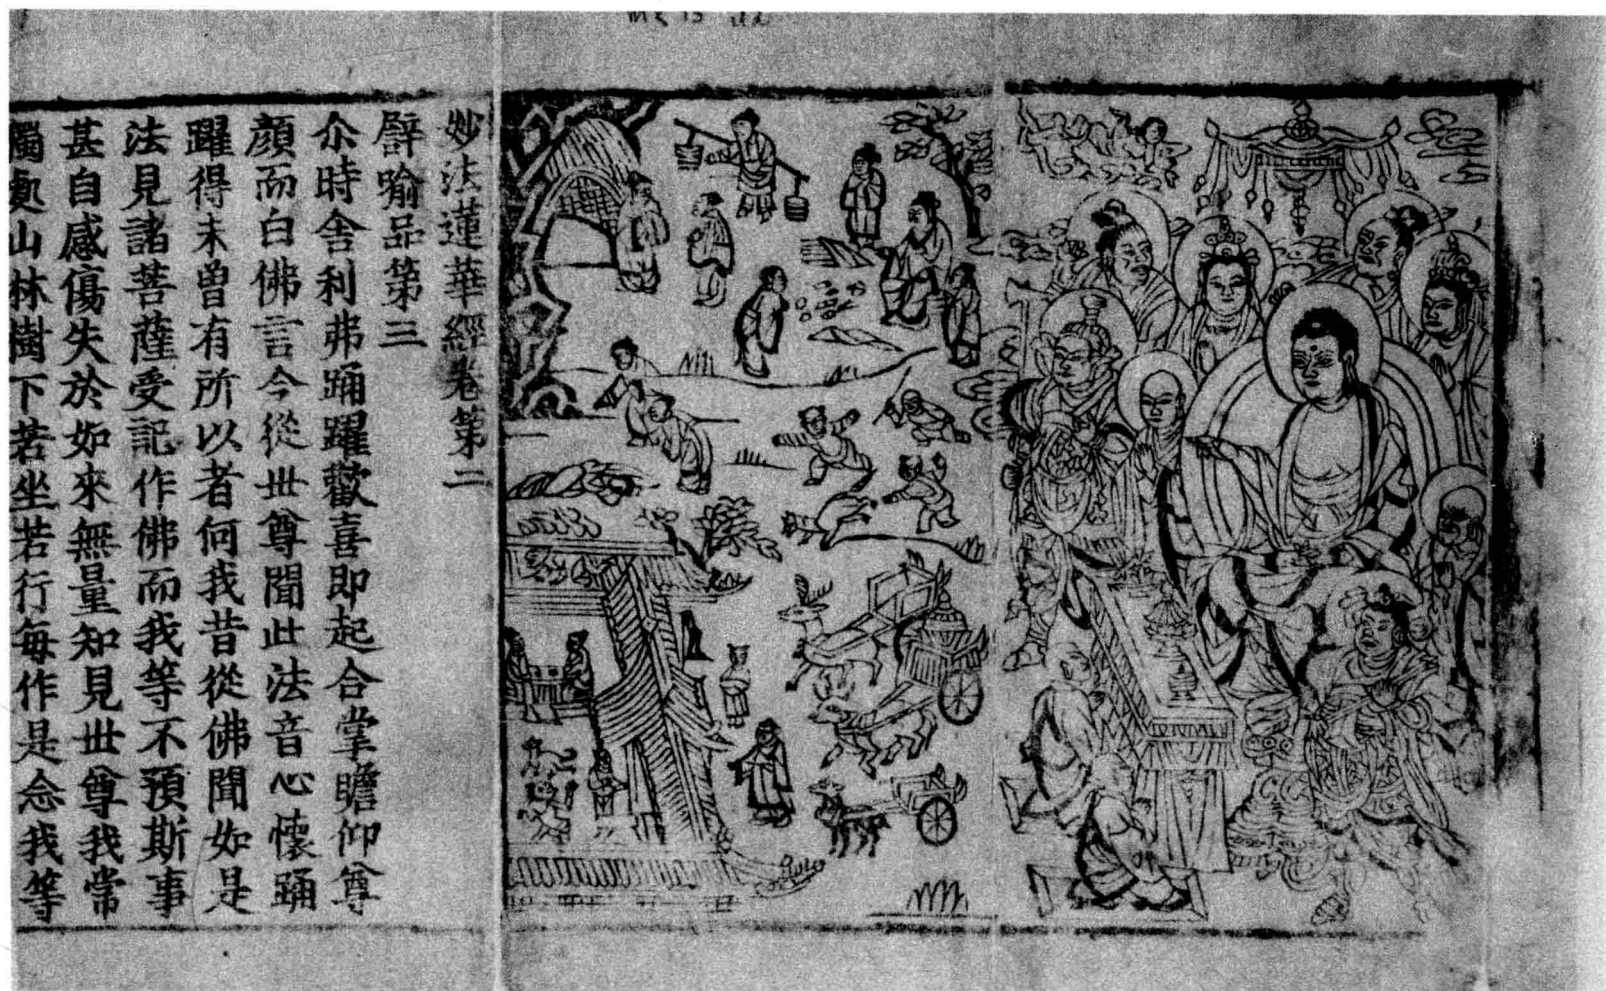 妙法蓮華經卷第二
譬喻品第三
尒時舍利弗踊躍歡喜即起合掌瞻仰尊
顏而白佛言今從世尊聞此法音心懷踊
躍得未曾有所以者何我昔從佛聞如是
法見諸菩薩受記作佛而我等不預斯事
甚自感傷失於如來無量知見世尊我常
獨處山林樹下若坐若行每作是念我等